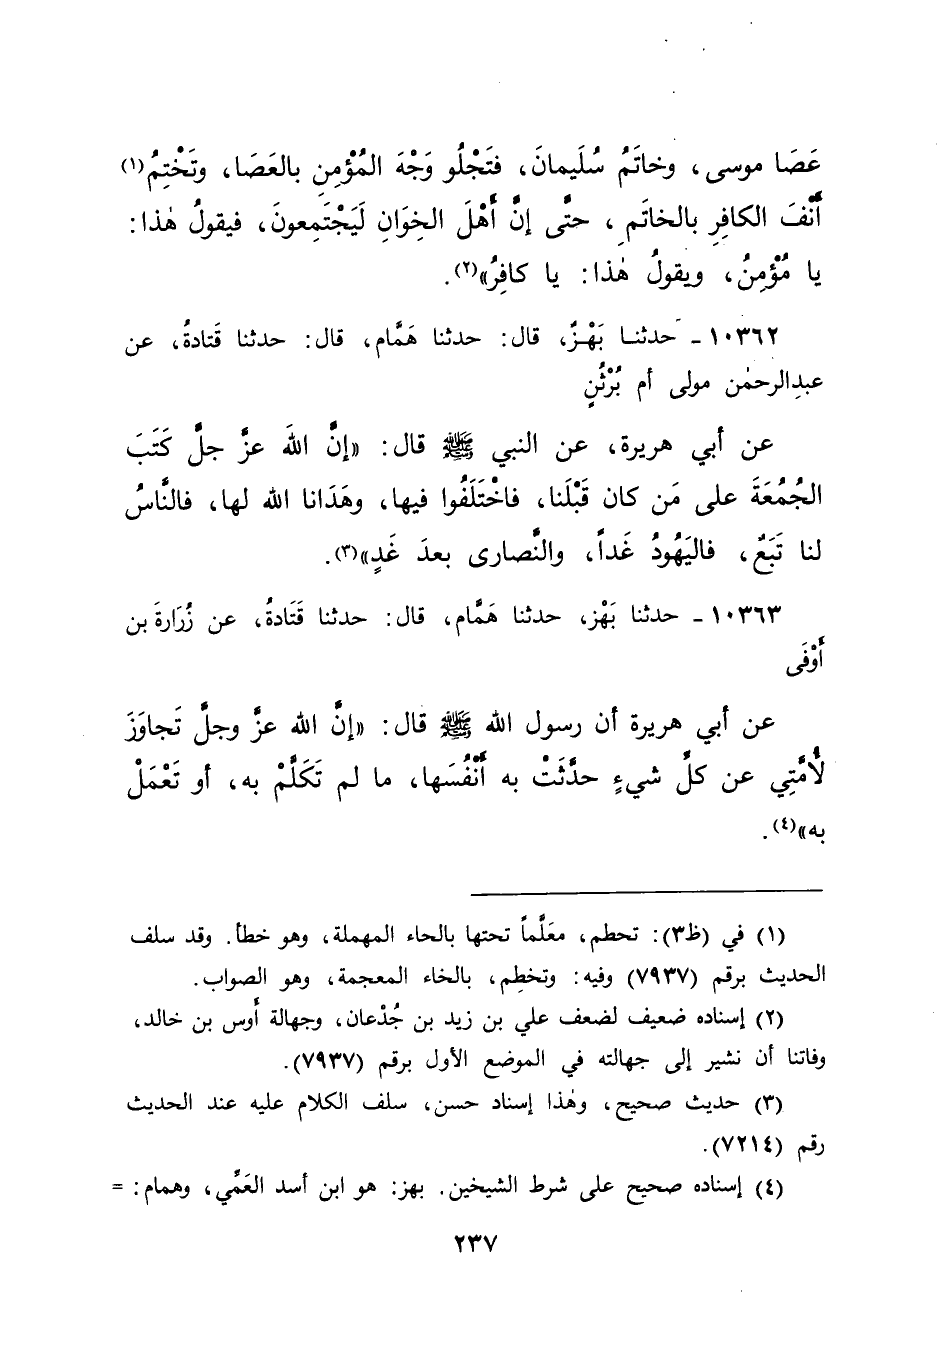 عَصَا موسى، وخاتَمُ سُلَيمانَ، فتَجْلُو وَجْهَ المُؤْمِنِ بالعَصَا، وتَخْتِمُ(١)
أَنْفَ الكافِرِ بالخاتَمِ، حتَّى إنَّ أَهْلَ الخِوَانِ لَيَجْتَمِعونَ، فيقولُ هٰذا:
يا مُؤْمِنُ، ويقولُ هٰذا: يا كافِرُ»(٢).
١٠٣٦٢ ـ حدثنا بَهْزٌ، قال: حدثنا هَمَّام، قال: حدثنا قَتادةُ، عن
عبدِالرحمٰن مولى أم بُرْثُنٍ
عن أبي هريرة، عن النبي ﷺ قال: «إنَّ اللهَ عزَّ جلَّ كَتَبَ
الجُمُعَةَ على مَن كان قَبْلَنا، فاخْتَلَفُوا فيها، وهَدَانا الله لها، فالنَّاسُ
لنا تَبَعٌ، فاليَهُودُ غَداً، والنَّصارى بعدَ غَدٍ»(٣).
١٠٣٦٣ ـ حدثنا بَهْز، حدثنا هَمَّام، قال: حدثنا قَتَادةُ، عن زُرَارةَ بن
أَوْفَى
عن أبي هريرة أن رسول الله ﷺ قال: «إنَّ الله عزَّ وجلَّ تَجاوَزَ
لُأمَّتِي عن كلِّ شيءٍ حدَّثَتْ به أَنْفُسَها، ما لم تَكَلَّمْ به، أو تَعْمَلْ
به»(٤).
(١) في (ظ٣): تحطم، معَلَّماً تحتها بالحاء المهملة، وهو خطأ. وقد سلف
الحديث برقم (٧٩٣٧) وفيه: وتخطِم، بالخاء المعجمة، وهو الصواب.
(٢) إسناده ضعيف لضعف علي بن زيد بن جُدْعان، وجهالة أَوس بن خالد،
وفاتنا أن نشير إلى جهالته في الموضع الأول برقم (٧٩٣٧).
(٣) حديث صحيح، وهٰذا إسناد حسن، سلف الكلام عليه عند الحديث
رقم (٧٢١٤).
(٤) إسناده صحيح على شرط الشيخين. بهز: هو ابن أسد العَمِّي، وهمام: =
٢٣٧